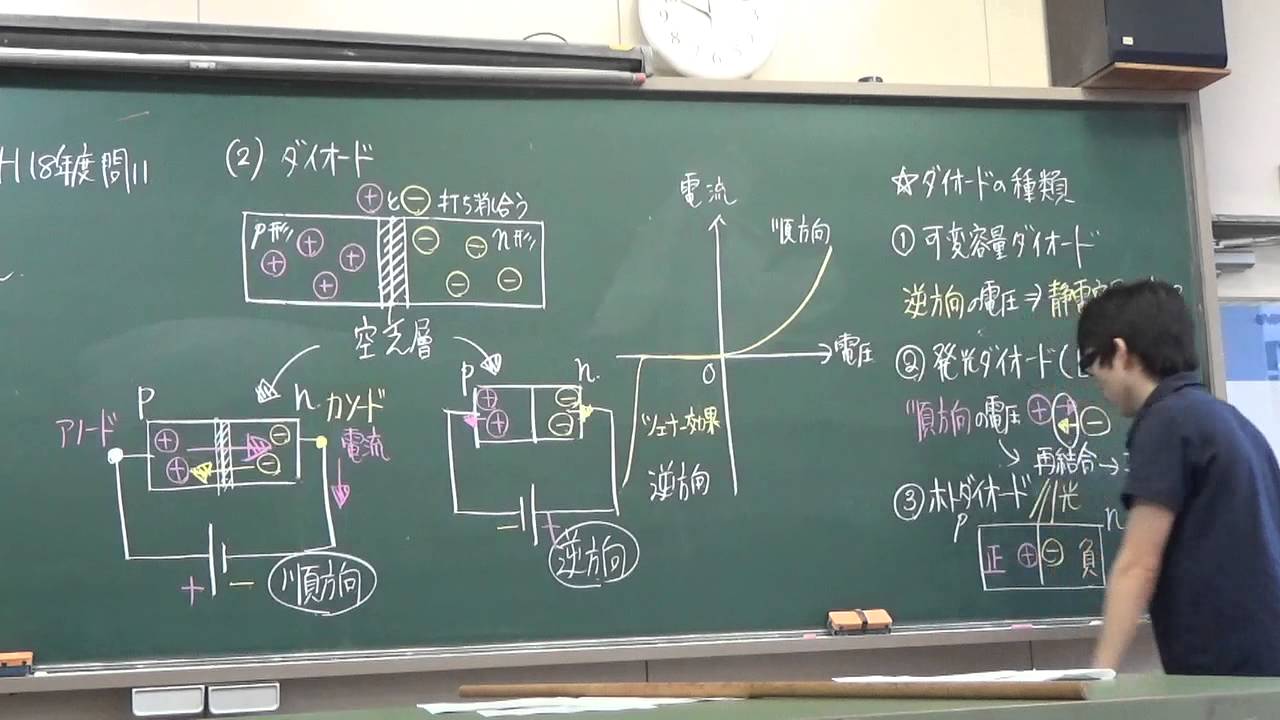 H18年度問11
(2) ダイオード
⊕と⊖打ち消し合う
p形 ⊕ ⊕ ⊕ ⊕ ⊖ ⊖ ⊖ ⊖ n形
空乏層
p n
アノード カソード
⊕ ⊖
⊕ ⊖
電流
+ −
順方向
p n
⊕ ⊖
⊕ ⊖
− +
逆方向
電流
順方向
電圧
0
ツェナー効果
逆方向
☆ダイオードの種類
① 可変容量ダイオード
逆方向の電圧⇒静電
② 発光ダイオード(
順方向の電圧 ⊕ ⊖
再結合→
③ ホトダイオード 光
p n
正 ⊕ ⊖ 負